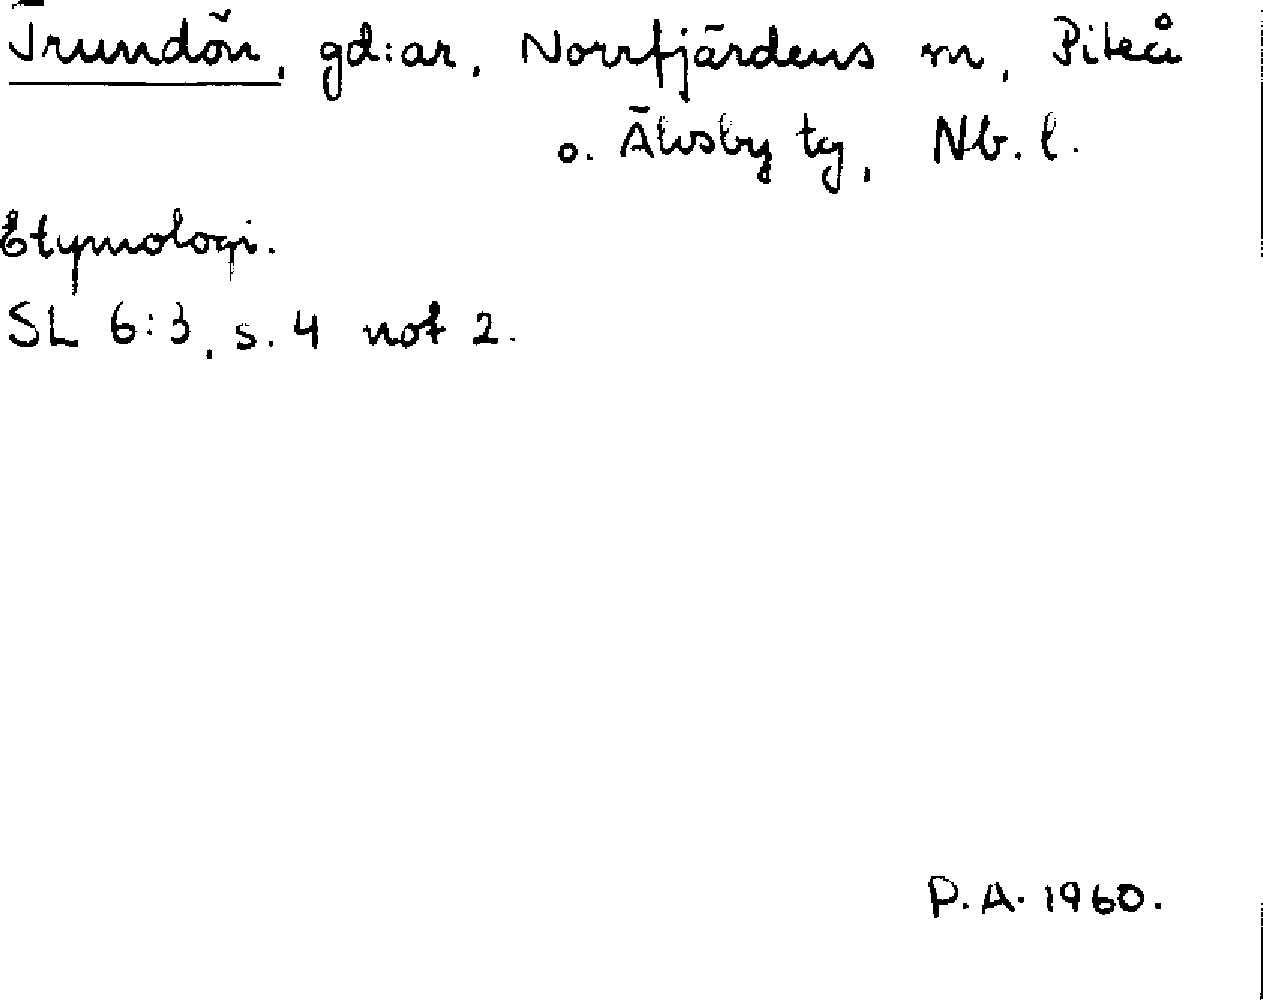 Trundön, gd:ar, Norrfjärdens sn, Piteå
o. Älvsby tg, Nb. l.
Etymologi.
SL 6:3, s. 4 not 2.
P.A. 1960.